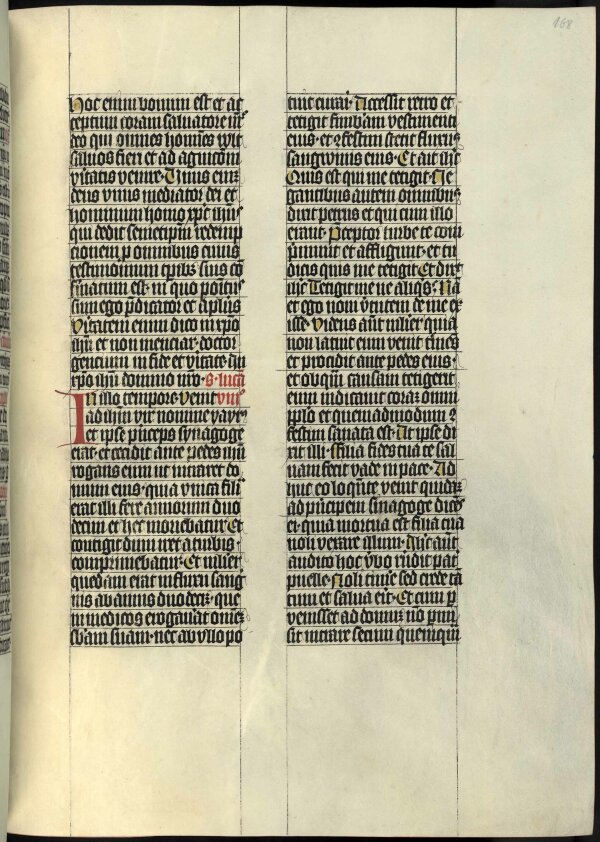 168
Hoc enim bonum est et ac
ceptum coram saluatore nr̄o
deo qui omnes homīes wlt
saluos fieri et ad agnicōm
v̄itatis venire· Vnus enī
deus vnus mediator dei et
hominum homo xp̄c ih̄us
qui dedit semetip̄m redemp
cionem p omnibus cuius
testimonium tp̄ibꝫ suis cō
firmatum est· in quo poītus
sum ego p̄dicator et ap̄lus
v̄itatem enim dico in xp̄o
ih̄u et non mencior· doctor
gencium in fide et v̄itate· In
xp̄o ih̄u domino nr̄o· S· luca
In illo tempore· Venit viij
ad ih̄m vir nomine yayrꝰ
et ipse p̄nceps synagoge
erat· et cecidit ante pedes ih̄u
rogans eum ut intraret do
mum eius· quia vnica fili
erat illi fere annorum duo
decim et hec moriebatur· Et
contigit dum iret a turbis
comprimebatur· Et mulier
quedam erat in fluxu sang
nis ab annis duodecꝫ· que
in medicos erogauat omneꝫ
sb̄am suam· nec ab vllo po
tuit curai· Accessit retro et
tetigit fimbiam vestimenti
eius· et ↄfestim stetit fluxus
sangwinis eius· Et ait ih̄c
Quis est qui me tetigit· Ne
gantibus autem omnibus
dixit petrus et qui cum illo
erant· P̄ceptor turbe te com
p̄munt et affligunt· et tu
dicis quis me tetigit· Et dixt
ih̄c Tetigit me aliqs· Nā
et ego noui v̄tutem de me ex
isse· Videns aūt mlier quia
non latuit eum venit tmēs
et procidit ante pedes eius·
et ob quā causam tetigerit
eum indicauit corā omni
pp̄lo et quemadmodum ↄ
festim sanata est· At ipse di
xit illi· filia fides tua te sal
uam fecit vade in pace· Ad
huc eo loq̄nte venit quidā
ad p̄ncipem sinagoge dicēs
ei· quia mortua est filia tua
noli vexare illum· Ih̄c aūt
audito hoc v̄bo rn̄dit pat
puelle· Noli timē sed crede tā
tum et salua erit· Et cum p̄
uenisset ad domū nō pmi
sit intrare secum quemqm̄